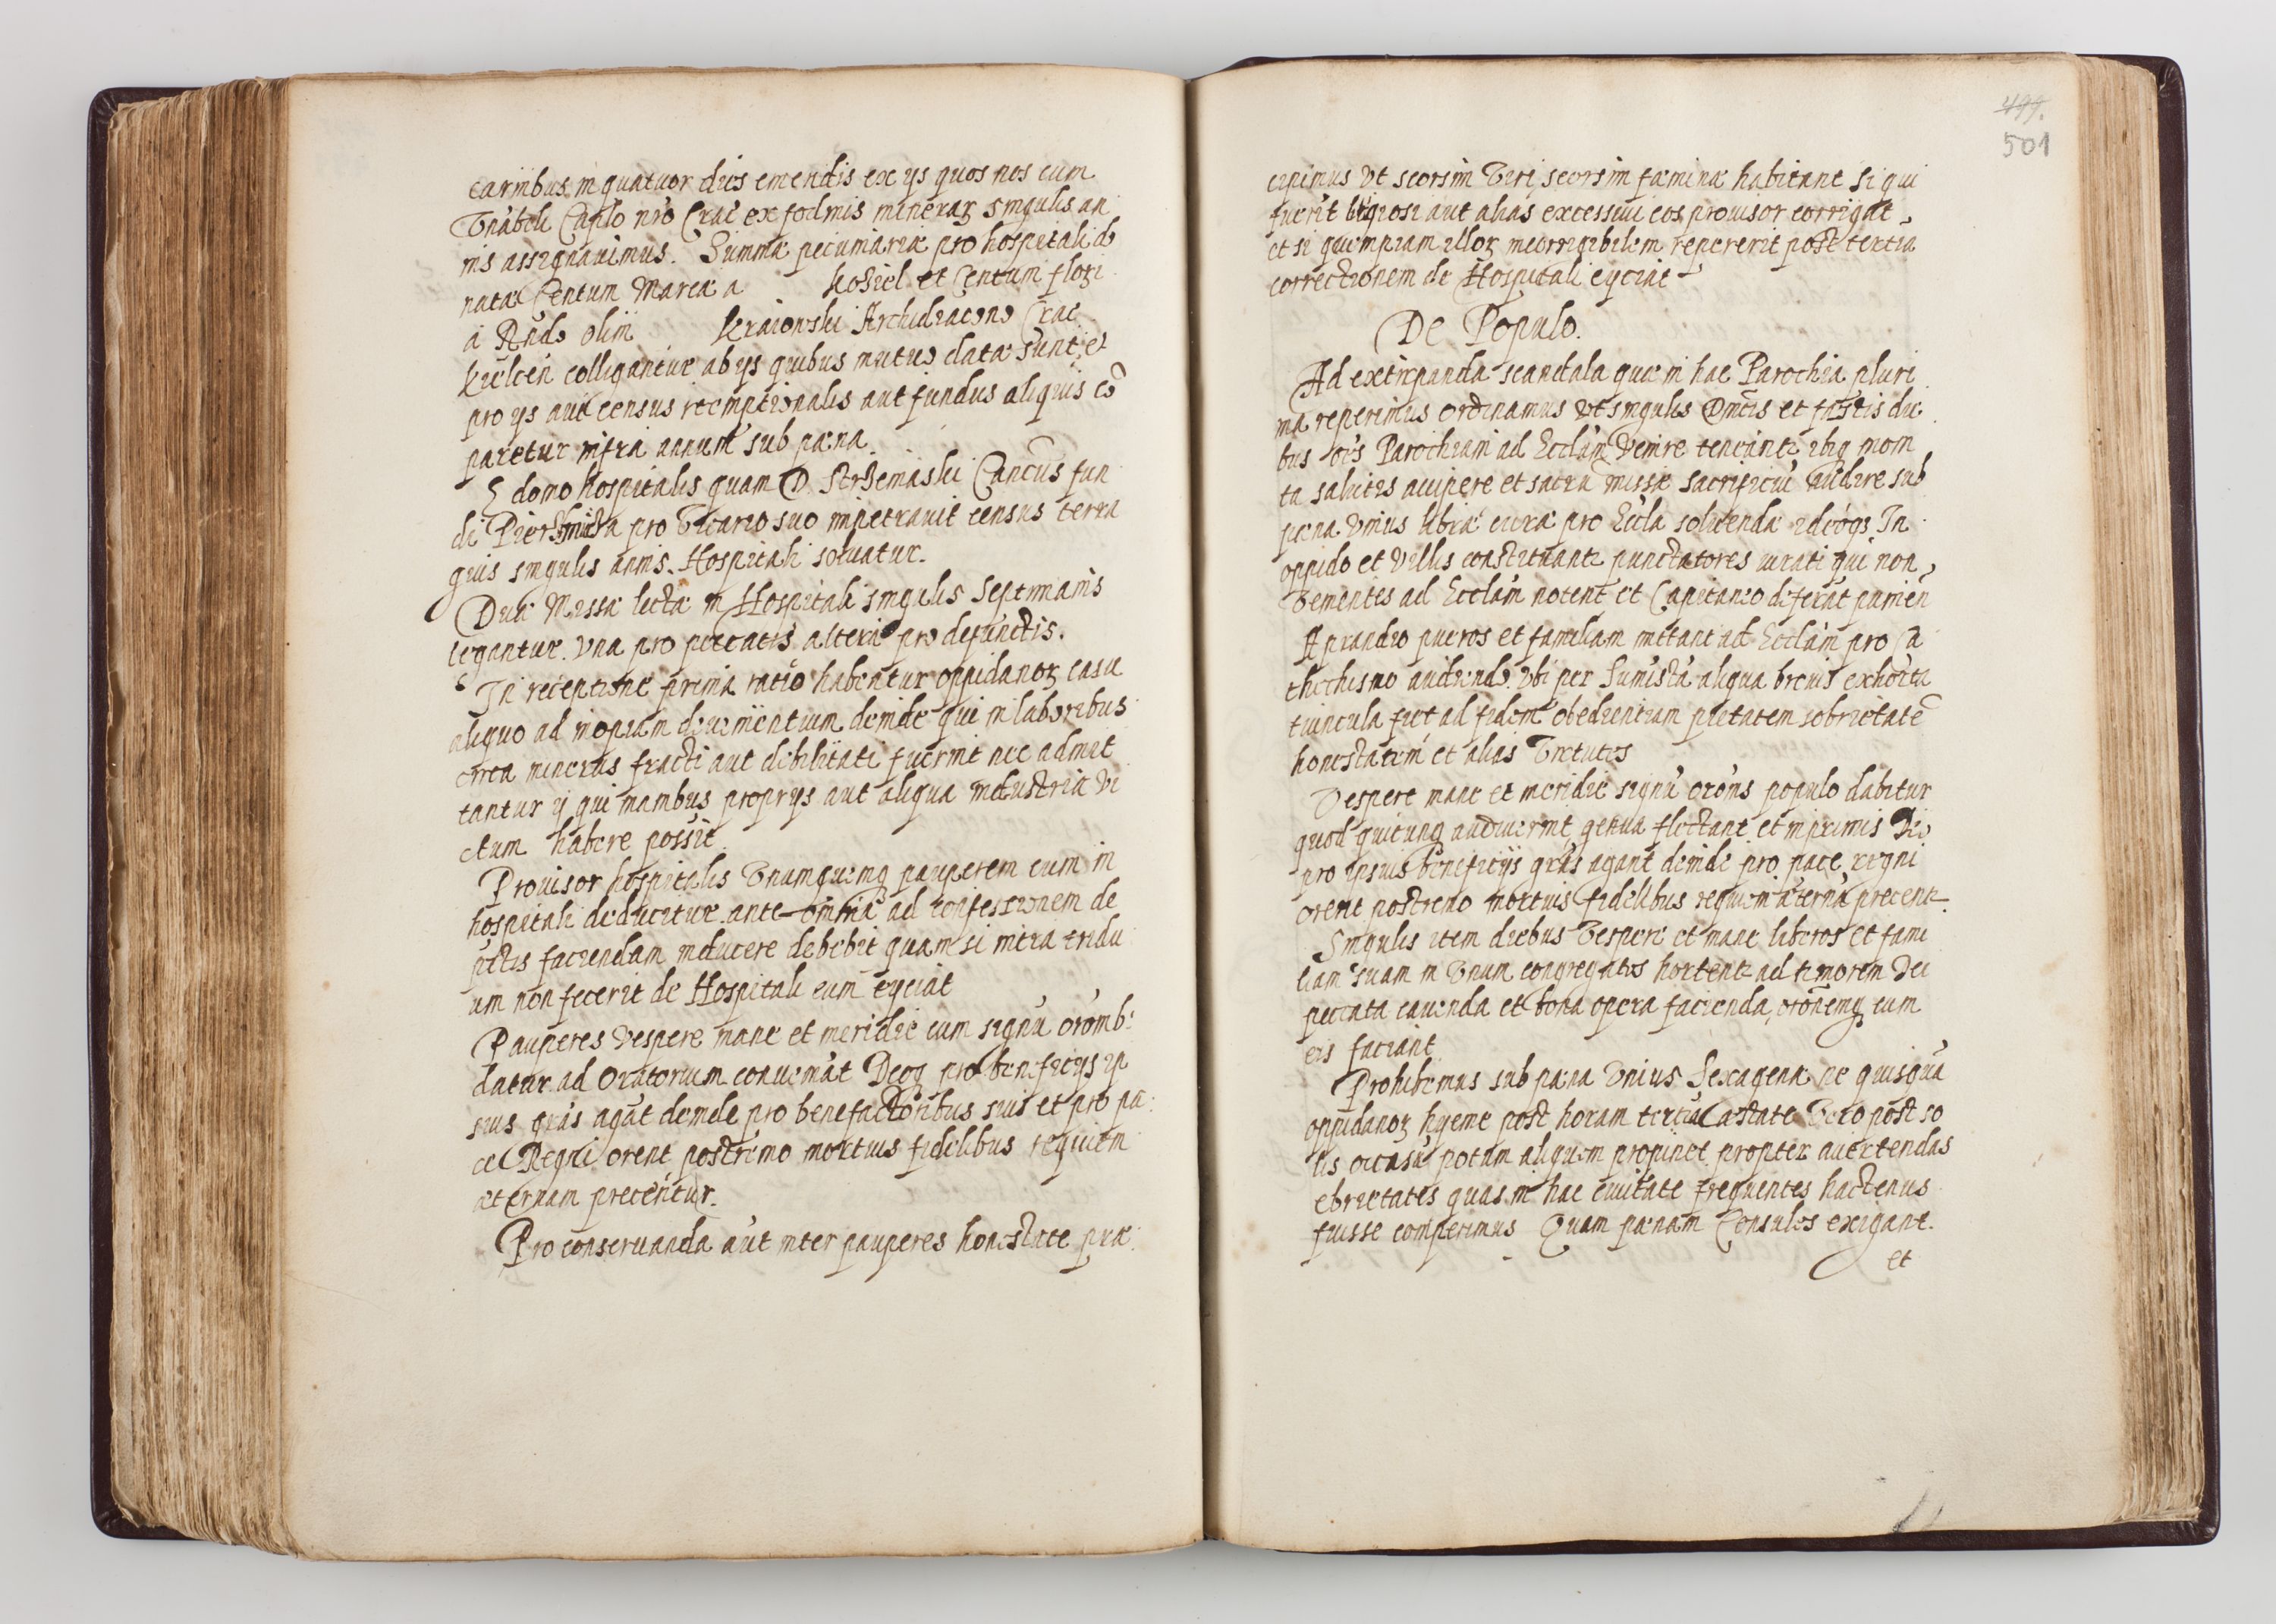 carnibus in quatuor dies emendis ex ijs quos nos cum
Vn̄abili Caplo n̄ro Crac̄ ex fodinis minerarꝫ singulis an
nis assignauimus. Summæ pecuniariæ pro hospitali do
natæ Centum Marcæ a Kosiel et Centum florꝫ
a Rn̄do olim Kraiowski Archidiacono Crac
Kielcen̄ colligantur ab ijs quibus mutuo datæ sunt, et
pro ijs aut census reemptionalis aut fundus aliquis cō
paretur infra annum sub pæna.
E domo hospitalis quam D. Strzemaski Canc̄us fun
di pro Vicario suo impetrauit census terra
gius singulis annis Hospitali soluatur.
Duæ Missæ lectæ in Hospitali singulis Septimanis
legantur. Vna pro peccatis altera pro defunctis.
In receptione prima ratio habentur oppidanorꝫ casu
aliquo ad inopiam deuenientium deinde qui in laboribus
circa mineras fracti aut debilitati fuerint nec admit
tantur ij qui manibus proprijs aut aliqua industria vi
ctum habere possit
Prouisor hospitalis Vnumquemqꝫ pauperem cum in
hospitali deducitur ante omnia ad confessionem de
pctis faciendam inducere debebit quam si intra tridu
um non fecerit de Hospitali eum eijciat
Pauperes vespere mane et meridie cum signū orōnib:
datur ad Oratorium conueniāt Deoqꝫ pro beneficijs ip
sius grās agāt deinde pro benefactoribus suis et pro pa:
ce Regni orent postremo mortuis fidelibus requiem
æternam precentur.
Pro conseruanda aūt inter pauperes honestate præ:
499.
501
cipimus vt seorsim Viri, seorsim fœminæ habitent Si qui
fuerīt litigiosi aut alias excessiui eos prouisor corrigat,
et si quempiam illorꝫ incorrigibilem repererit post tertiā
correctionem de Hospitali eyciat
De Populo.
Ad extirpanda scandala quæ in hac Parochia pluri
ma reperimus ordinamus vt singulis Dnīcis et festis die
bus oēs Parochiani ad Ecclām Venire teneantꝫ ibiqꝫ moni
ta salutis accipere et sacrū missæ sacrificiū audire sub
pæna Vnius libræ ceræ pro Eccla soluenda ideoqꝫ In
oppido et villis constituantꝫ punctatores iurati qui non,
Venientes ad Ecclām notent et Capitaneo deferāt punien̄
A prandio pueros et familiam mittant ad Ecclām pro Ca
thechismo audiendo. Vbi per Sumistā aliqua breuis exhorta
tiuncula fiet ad fidem obedientiam pietatem sobrietatē
honestatem et alias Virtutes
Vespere mane et meridie signū orōnis populo dabitur
quod quicunqꝫ audiuerint, genua flectant et inprimis Deo
pro ipsius beneficijs grās agant deinde pro pace regni
orent postremo mortuis fidelibus requiem æternā precentꝫ.
Singulis item diebus Vespere et mane liberos et fami
liam suam in Vnum congregatos hortentꝫ ad timorem Dei
peccata cauenda et bona opera facienda, orōnemqꝫ cum
eis faciant
Prohibemus sub pæna Vnius Sexagenæ ne quisquā
oppidanorꝫ hyeme post horam tertiā æstate Vero post so
lis occasū potum aliquem propinet propter auertendas
ebrietates quas in hac ciuitate frequentes hactenus
fuisse comperimus Quam pænam Consules exigant.
et